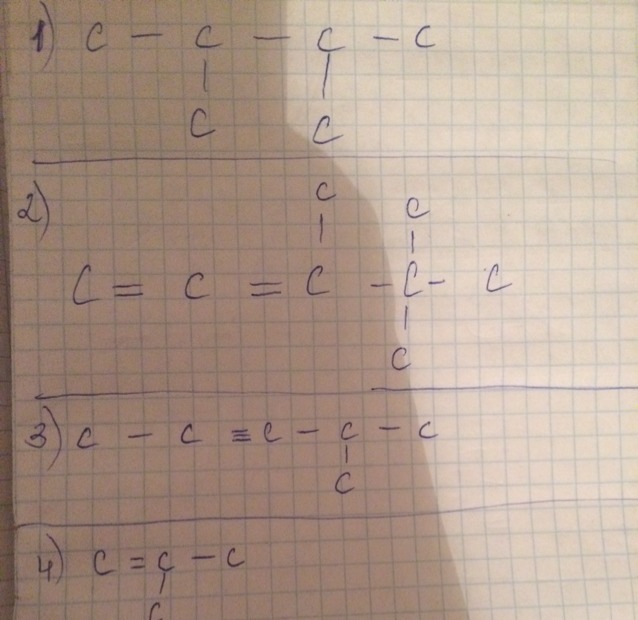 1) C — C — C — C
| |
C C
2) C C
| |
C = C = C - C - C
|
C
3) C - C ≡ C - C - C
|
C
4) C = C - C
|
C